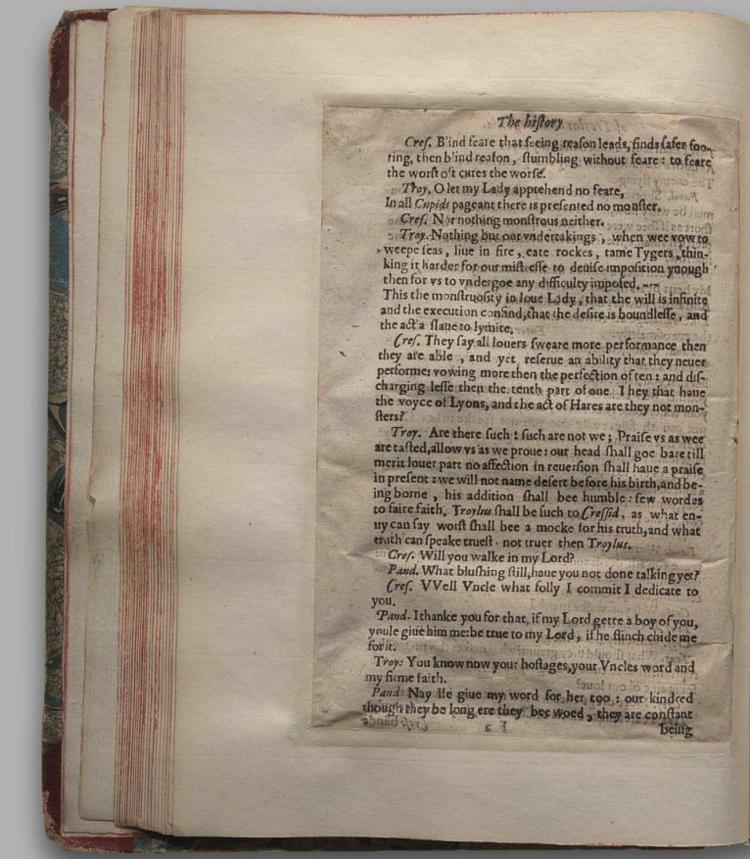 The history
Cres. Blind feare that seeing reason leads, finds safer foo-
ting, then blind reason, stumbling without feare: to feare
the worst oft cures the worse.
Troy. O let my Lady apprehend no feare,
In all Cupids pageant there is presented no monster.
Cres. Nor nothing monstrous neither.
Troy. Nothing but our vndertakings, when wee vow to
weepe seas, liue in fire, eate rockes, tame Tygers, thin-
king it harder for our mistresse to deuise imposition ynough
then for vs to vndergoe any difficulty imposed.
This the monstruosity in loue Lady, that the will is infinite
and the execution confind, that the desire is boundlesse, and
the act a slaue to lymite.
Cres. They say all louers sweare more performance then
they are able, and yet reserue an ability that they neuer
performe: vowing more then the perfection of ten: and dis-
charging lesse then the tenth part of one. They that haue
the voyce of Lyons, and the act of Hares are they not mon-
sters?
Troy. Are there such: such are not we; Praise vs as wee
are tasted, allow vs as we proue: our head shall goe bare till
merit louer part no affection in reuersion shall haue a praise
in present: we will not name desert before his birth, and be-
ing borne, his addition shall bee humble: few wordes
to faire faith. Troylus shall be such to Cressid, as what en-
uy can say worst shall bee a mocke for his truth, and what
truth can speake truest. not truer then Troylus.
Cres. Will you walke in my Lord?
Pand. What blushing still, haue you not done talking yet?
Cres. VVell Vncle what folly I commit I dedicate to
you.
Pand. I thanke you for that, if my Lord gette a boy of you,
youle giue him me: be true to my Lord, if he flinch chide me
for it.
Troy: You know now your hostages, your Vncles word and
my firme faith.
Pand: Nay Ile giue my word for her too: our kindred
though they be long ere they bee woed, they are constant
being